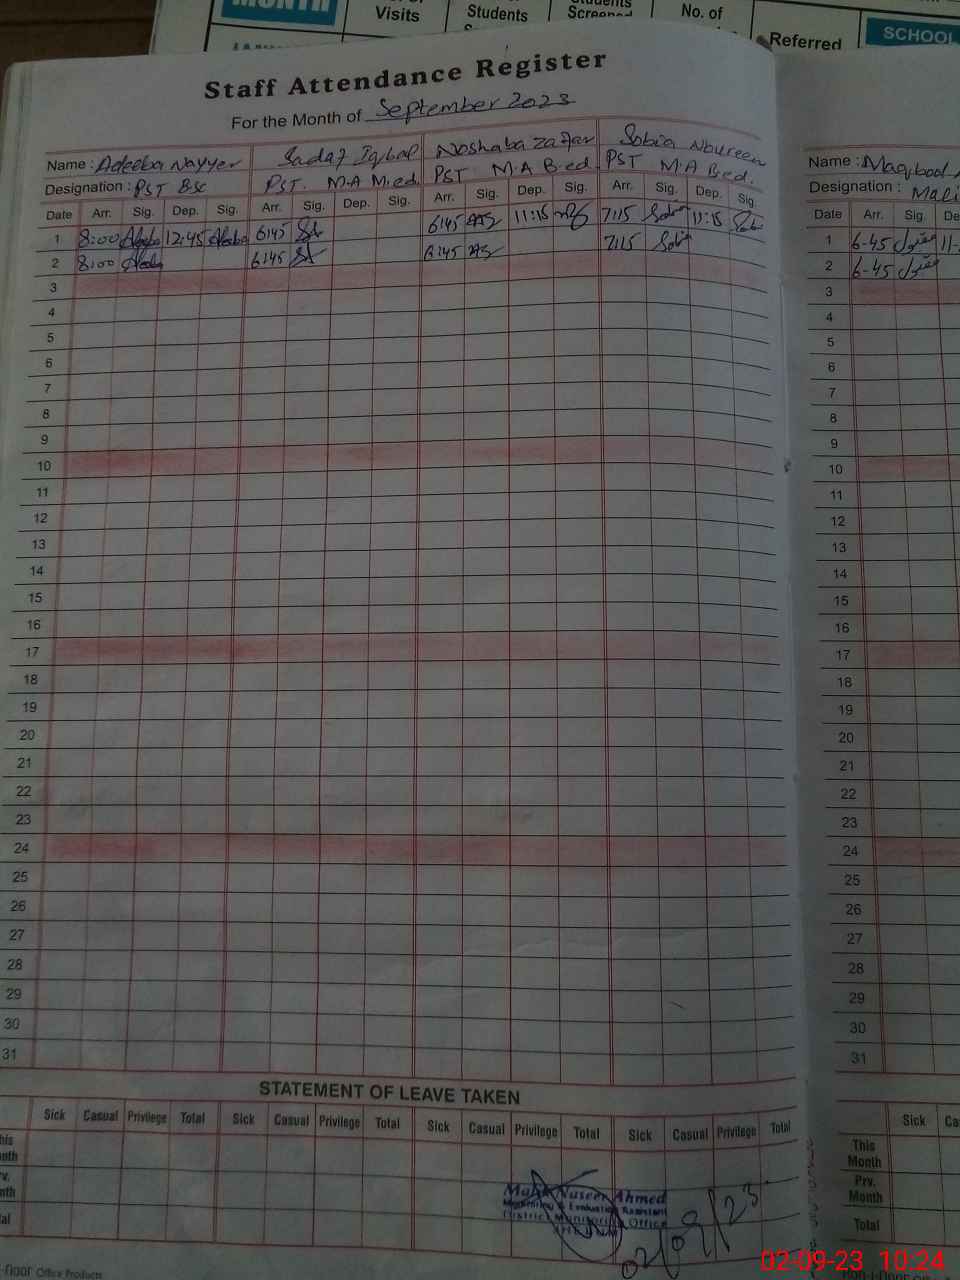 MONTH
Visits
Students
Students
Screened
No. of
Referred
SCHOOL
Staff Attendance Register
For the Month of September 2023
Name : Adeeba Nayyer Sadaf Iqbal Noshaba Zafar Sobia Noureen
Designation : PST BSc PST. M.A M.ed. PST M.A B.ed PST M.A B.ed.
Date Arr. Sig. Dep. Sig. Arr. Sig. Dep. Sig. Arr. Sig. Dep. Sig. Arr. Sig. Dep. Sig.
1 8:00 Adeeba 12:45 Adeeba 6:45 6:45 11:15 7:15 Sobia 11:15
2 8:00 Adeeba 6:45 6:45 7:15 Sobia
3
4
5
6
7
8
9
10
11
12
13
14
15
16
17
18
19
20
21
22
23
24
25
26
27
28
29
30
31
STATEMENT OF LEAVE TAKEN
Sick Casual Privilege Total Sick Casual Privilege Total Sick Casual Privilege Total Sick Casual Privilege Total
Naseer Ahmed
Monitoring & Evaluation Assistant
District Monitoring Office
02/09/23
Office Products
Name : Maqbool
Designation : Mali
Date Arr. Sig. De
1 6-45 مقبول 11-
2 6-45 مقبول
3
4
5
6
7
8
9
10
11
12
13
14
15
16
17
18
19
20
21
22
23
24
25
26
27
28
29
30
31
Sick Ca
This
Month
Prv.
Month
Total
02-09-23 10:24